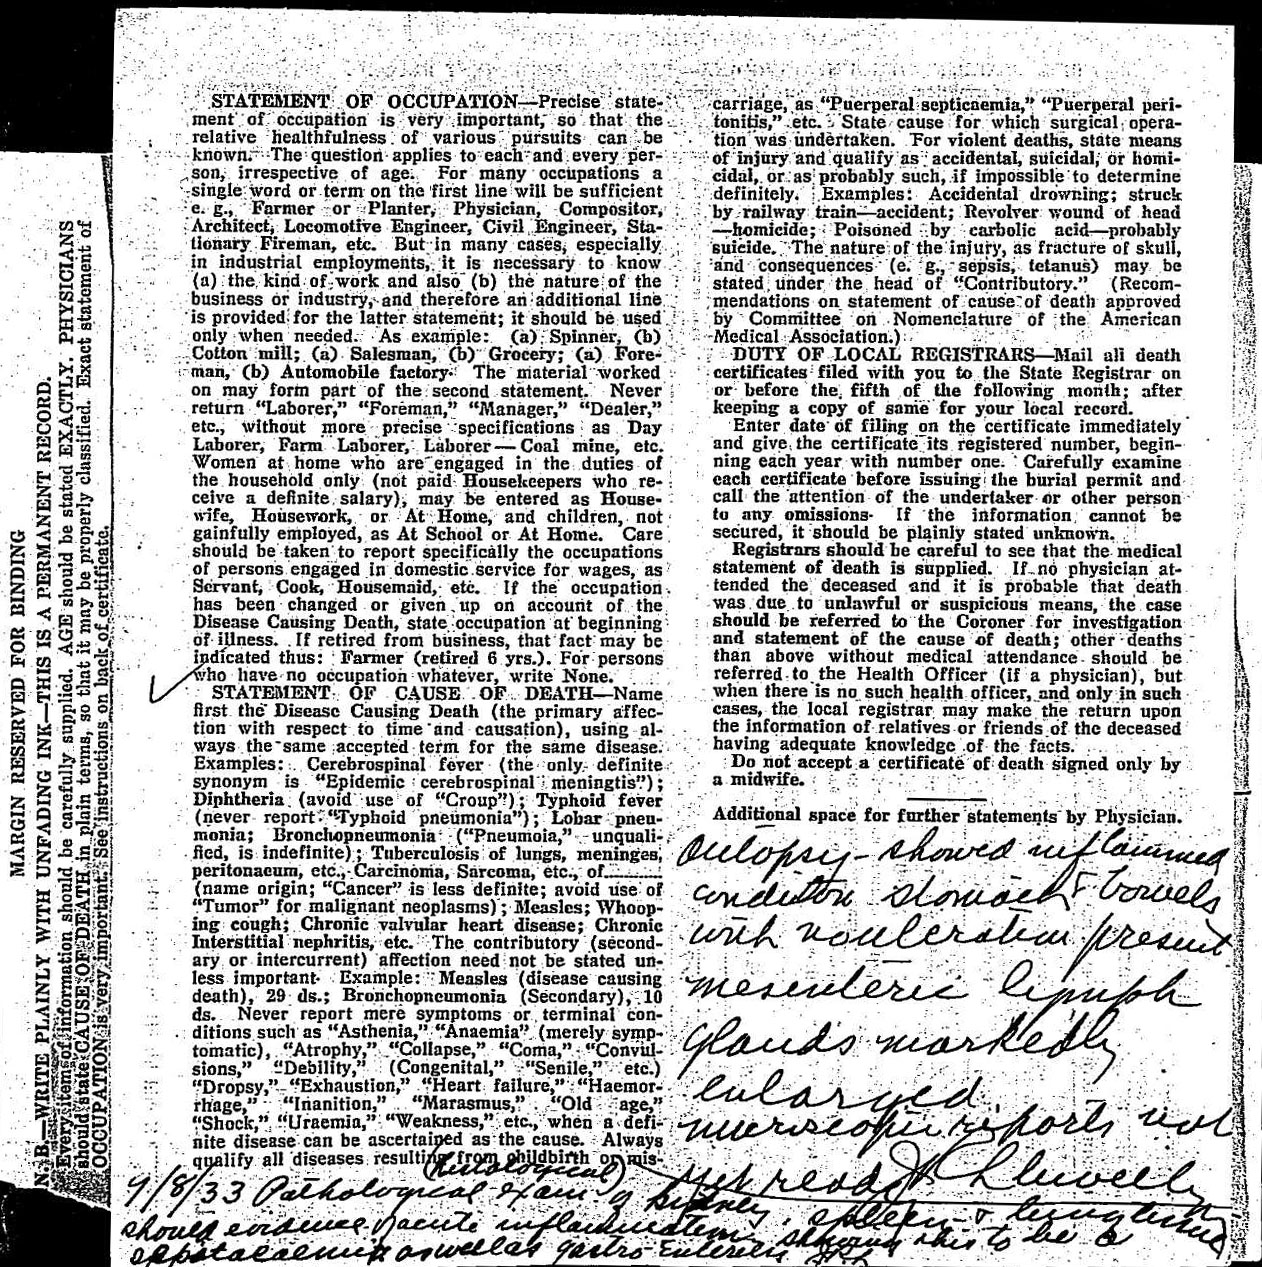 MARGIN RESERVED FOR BINDING
N. B.—WRITE PLAINLY WITH UNFADING INK—THIS IS A PERMANENT RECORD.
Every item of information should be carefully supplied. AGE should be stated EXACTLY. PHYSICIANS
should state CAUSE OF DEATH in plain terms, so that it may be properly classified. Exact statement of
OCCUPATION is very important. See instructions on back of certificate.
STATEMENT OF OCCUPATION—Precise state-
ment of occupation is very important, so that the
relative healthfulness of various pursuits can be
known. The question applies to each and every per-
son, irrespective of age. For many occupations a
single word or term on the first line will be sufficient
e. g., Farmer or Planter, Physician, Compositor,
Architect, Locomotive Engineer, Civil Engineer, Sta-
tionary Fireman, etc. But in many cases, especially
in industrial employments, it is necessary to know
(a) the kind of work and also (b) the nature of the
business or industry, and therefore an additional line
is provided for the latter statement; it should be used
only when needed. As example: (a) Spinner, (b)
Cotton mill; (a) Salesman, (b) Grocery; (a) Fore-
man, (b) Automobile factory. The material worked
on may form part of the second statement. Never
return "Laborer," "Foreman," "Manager," "Dealer,"
etc., without more precise specifications as Day
Laborer, Farm Laborer, Laborer—Coal mine, etc.
Women at home who are engaged in the duties of
the household only (not paid Housekeepers who re-
ceive a definite salary), may be entered as House-
wife, Housework, or At Home, and children, not
gainfully employed, as At School or At Home. Care
should be taken to report specifically the occupations
of persons engaged in domestic service for wages, as
Servant, Cook, Housemaid, etc. If the occupation
has been changed or given up on account of the
Disease Causing Death, state occupation at beginning
of illness. If retired from business, that fact may be
indicated thus: Farmer (retired 6 yrs.). For persons
who have no occupation whatever, write None.
STATEMENT OF CAUSE OF DEATH—Name
first the Disease Causing Death (the primary affec-
tion with respect to time and causation), using al-
ways the same accepted term for the same disease.
Examples: Cerebrospinal fever (the only definite
synonym is "Epidemic cerebrospinal meningtis");
Diphtheria (avoid use of "Croup"); Typhoid fever
(never report "Typhoid pneumonia"); Lobar pneu-
monia; Bronchopneumonia ("Pneumoia," unquali-
fied, is indefinite); Tuberculosis of lungs, meninges,
peritonaeum, etc., Carcinoma, Sarcoma, etc., of
(name origin; "Cancer" is less definite; avoid use of
"Tumor" for malignant neoplasms); Measles; Whoop-
ing cough; Chronic valvular heart disease; Chronic
Interstitial nephritis, etc. The contributory (second-
ary or intercurrent) affection need not be stated un-
less important. Example: Measles (disease causing
death), 29 ds.; Bronchopneumonia (Secondary), 10
ds. Never report mere symptoms or terminal con-
ditions such as "Asthenia," "Anaemia" (merely symp-
tomatic), "Atrophy," "Collapse," "Coma," "Convul-
sions," "Debility," (Congenital," "Senile," etc.)
"Dropsy," "Exhaustion," "Heart failure," "Haemor-
rhage," "Inanition," "Marasmus," "Old age,"
"Shock," "Uraemia," "Weakness," etc., when a defi-
nite disease can be ascertained as the cause. Always
qualify all diseases resulting from childbirth or mis-
carriage, as "Puerperal septicaemia," "Puerperal peri-
tonitis," etc. State cause for which surgical opera-
tion was undertaken. For violent deaths, state means
of injury and qualify as accidental, suicidal, or homi-
cidal, or as probably such, if impossible to determine
definitely. Examples: Accidental drowning; struck
by railway train—accident; Revolver wound of head
—homicide; Poisoned by carbolic acid—probably
suicide. The nature of the injury, as fracture of skull,
and consequences (e. g., sepsis, tetanus) may be
stated under the head of "Contributory." (Recom-
mendations on statement of cause of death approved
by Committee on Nomenclature of the American
Medical Association.)
DUTY OF LOCAL REGISTRARS—Mail all death
certificates filed with you to the State Registrar on
or before the fifth of the following month; after
keeping a copy of same for your local record.
Enter date of filing on the certificate immediately
and give the certificate its registered number, begin-
ning each year with number one. Carefully examine
each certificate before issuing the burial permit and
call the attention of the undertaker or other person
to any omissions. If the information cannot be
secured, it should be plainly stated unknown.
Registrars should be careful to see that the medical
statement of death is supplied. If no physician at-
tended the deceased and it is probable that death
was due to unlawful or suspicious means, the case
should be referred to the Coroner for investigation
and statement of the cause of death; other deaths
than above without medical attendance should be
referred to the Health Officer (if a physician), but
when there is no such health officer, and only in such
cases, the local registrar may make the return upon
the information of relatives or friends of the deceased
having adequate knowledge of the facts.
Do not accept a certificate of death signed only by
a midwife.
Additional space for further statements by Physician.
Autopsy - showed inflammed
condition stomach & bowels
with no ulceration present
mesenteric lymph
glands markedly
enlarged.
microscopic reports not
yet read. Llewelly
(histological)
9/8/33 Pathological exam of kidney, spleen & lung tissue
should evidence of acute inflammation showing this to be a
as well as gastro-enteritis